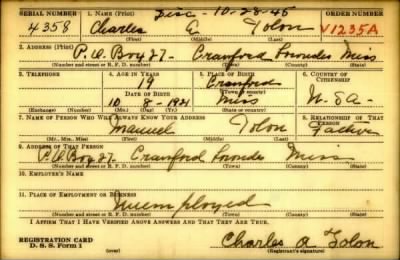 Disc 10-28-45
SERIAL NUMBER 1. NAME (Print) ORDER NUMBER
4358 Charles E Tolon V1235A
(First) (Middle) (Last)
2. ADDRESS (Print)
P.O. Box 27. Crawford Lowndes Miss
(Number and street or R. F. D. number) (Town) (County) (State)
3. TELEPHONE 4. AGE IN YEARS 5. PLACE OF BIRTH 6. COUNTRY OF CITIZENSHIP
19 Crawford
DATE OF BIRTH (Town or county)
10 8-1921 Miss U.S.A.
(Exchange) (Number) (Mo.) (Day) (Yr.) (State or country)
7. NAME OF PERSON WHO WILL ALWAYS KNOW YOUR ADDRESS 8. RELATIONSHIP OF THAT PERSON
Manuel Tolon Father
(Mr., Mrs., Miss) (First) (Middle) (Last)
9. ADDRESS OF THAT PERSON
P.O. Box 27. Crawford Lowndes Miss
(Number and street or R. F. D. number) (Town) (County) (State)
10. EMPLOYER'S NAME
11. PLACE OF EMPLOYMENT OR BUSINESS
Unemployed
(Number and street or R. F. D. number) (Town) (County) (State)
I AFFIRM THAT I HAVE VERIFIED ABOVE ANSWERS AND THAT THEY ARE TRUE.
REGISTRATION CARD
D. S. S. Form 1 Charles A Tolon
(Registrant's signature)